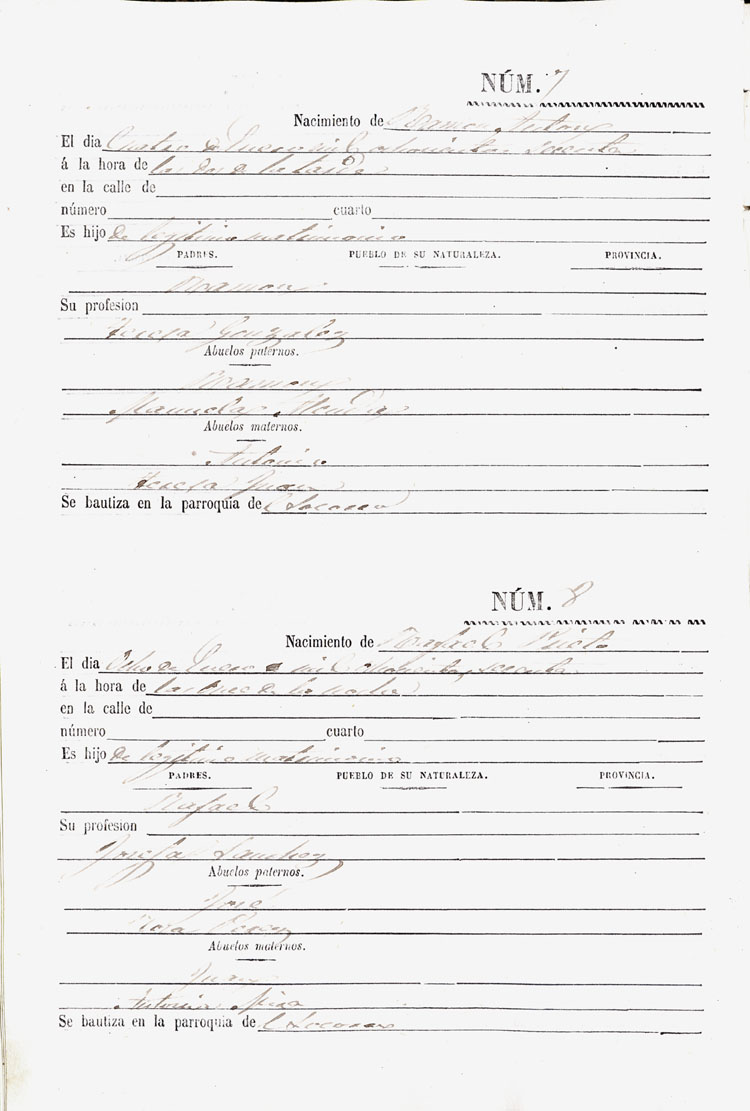 NÚM. 7
Nacimiento de Ramon Antony
El dia Cuatro de Enero mil ochocientos sesenta
á la hora de las dos de la tarde
en la calle de
número cuarto
Es hijo de legitimo matrimonio
PADRES. PUEBLO DE SU NATURALEZA. PROVINCIA.
Ramon
Su profesion
Teresa Gonzalez
Abuelos paternos.
Ramon
Manuela
Abuelos maternos.
Antonio
Teresa Juan
Se bautiza en la parroquia del Socorro
NÚM. 8
Nacimiento de Rafael
El dia Ocho de Enero mil ochocientos sesenta
á la hora de las once de la noche
en la calle de
número cuarto
Es hijo de legitimo matrimonio
PADRES. PUEBLO DE SU NATURALEZA. PROVINCIA.
Rafael
Su profesion
Josefa Sanchez
Abuelos paternos.
José
Rosa Perez
Abuelos maternos.
Juan
Antonia
Se bautiza en la parroquia del Socorro